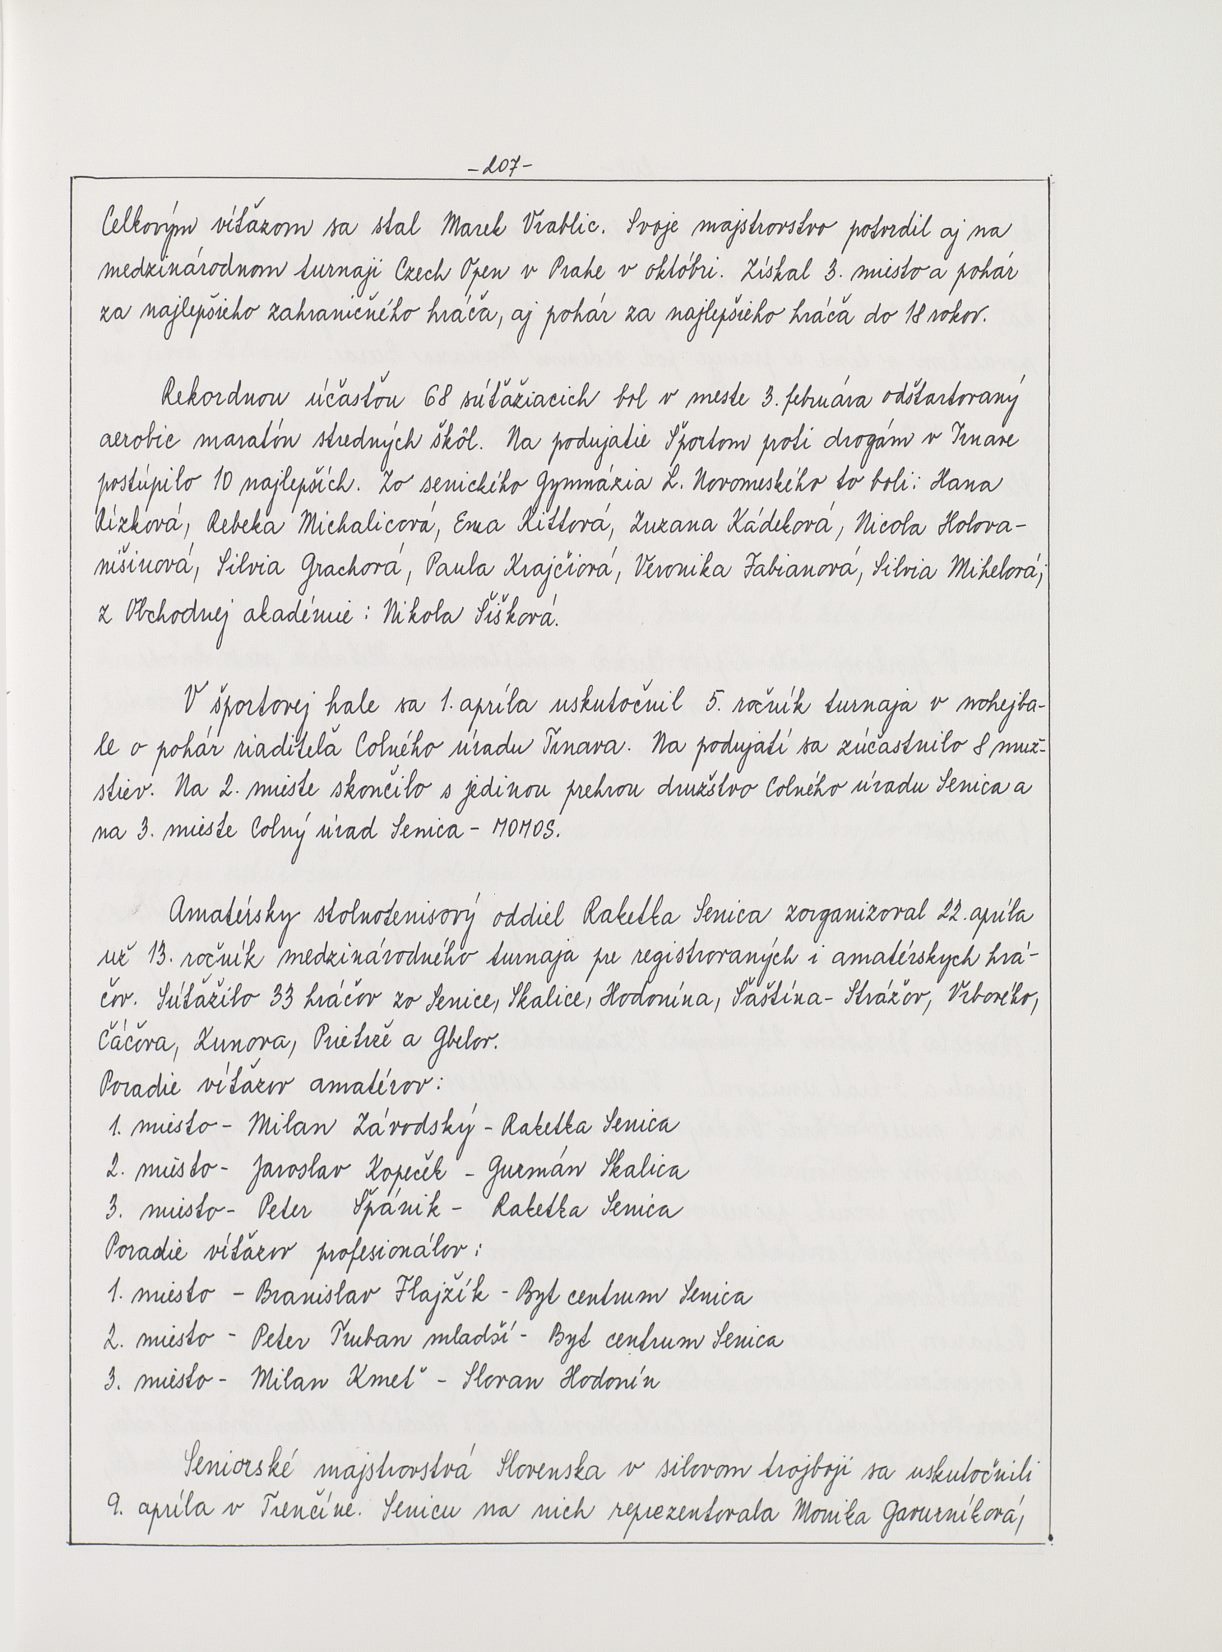 -207-
Celkovým víťazom sa stal Marek Vrablic. Svoje majstrovstvo potvrdil aj na
medzinárodnom turnaji Czech Open v Prahe v októbri. Získal 3. miesto a pohár
za najlepšieho zahraničného hráča, aj pohár za najlepšieho hráča do 18 rokov.
Rekordnou účasťou 68 súťažiacich bol v meste 3. februára odštartovaný
aerobic maratón stredných škôl. Na podujatie Športom proti drogám v Trnave
postúpilo 10 najlepších. Zo senického Gymnázia L. Novomeského to boli: Hana
Rízková, Rebeka Michalicová, Ema Kittová, Zuzana Kádeková, Nicola Holova-
nišinová, Silvia Grachová, Paula Krajčiová, Veronika Fabianová, Silvia Mihelová;
z Obchodnej akadémie: Nikola Šišková.
V športovej hale sa 1. apríla uskutočnil 5. ročník turnaja v nohejba-
le o pohár riaditeľa Colného úradu Trnava. Na podujatí sa zúčastnilo 8 muž-
stiev. Na 2. mieste skončilo s jedinou prehrou družstvo Colného úradu Senica a
na 3. mieste Colný úrad Senica - MOMOS.
Amatérsky stolnotenisový oddiel Raketka Senica zorganizoval 22. apríla
už 13. ročník medzinárodného turnaja pre registrovaných i amatérskych hrá-
čov. Súťažilo 33 hráčov zo Senice, Skalice, Hodonína, Šaštína - Strážov, Vrbového,
Čáčova, Kunova, Prietrže a Gbelov.
Poradie víťazov amatérov:
1. miesto - Milan Závodský - Raketka Senica
2. miesto - Jaroslav Kopeček - Guzmán Skalica
3. miesto - Peter Špánik - Raketka Senica
Poradie víťazov profesionálov:
1. miesto - Branislav Flajžík - Byt centrum Senica
2. miesto - Peter Truban mladší - Byt centrum Senica
3. miesto - Milan Kmeť - Slovan Hodonín
Seniorské majstrovstvá Slovenska v silovom trojboji sa uskutočnili
9. apríla v Trenčíne. Senicu na nich reprezentovala Monika Gavurníková,